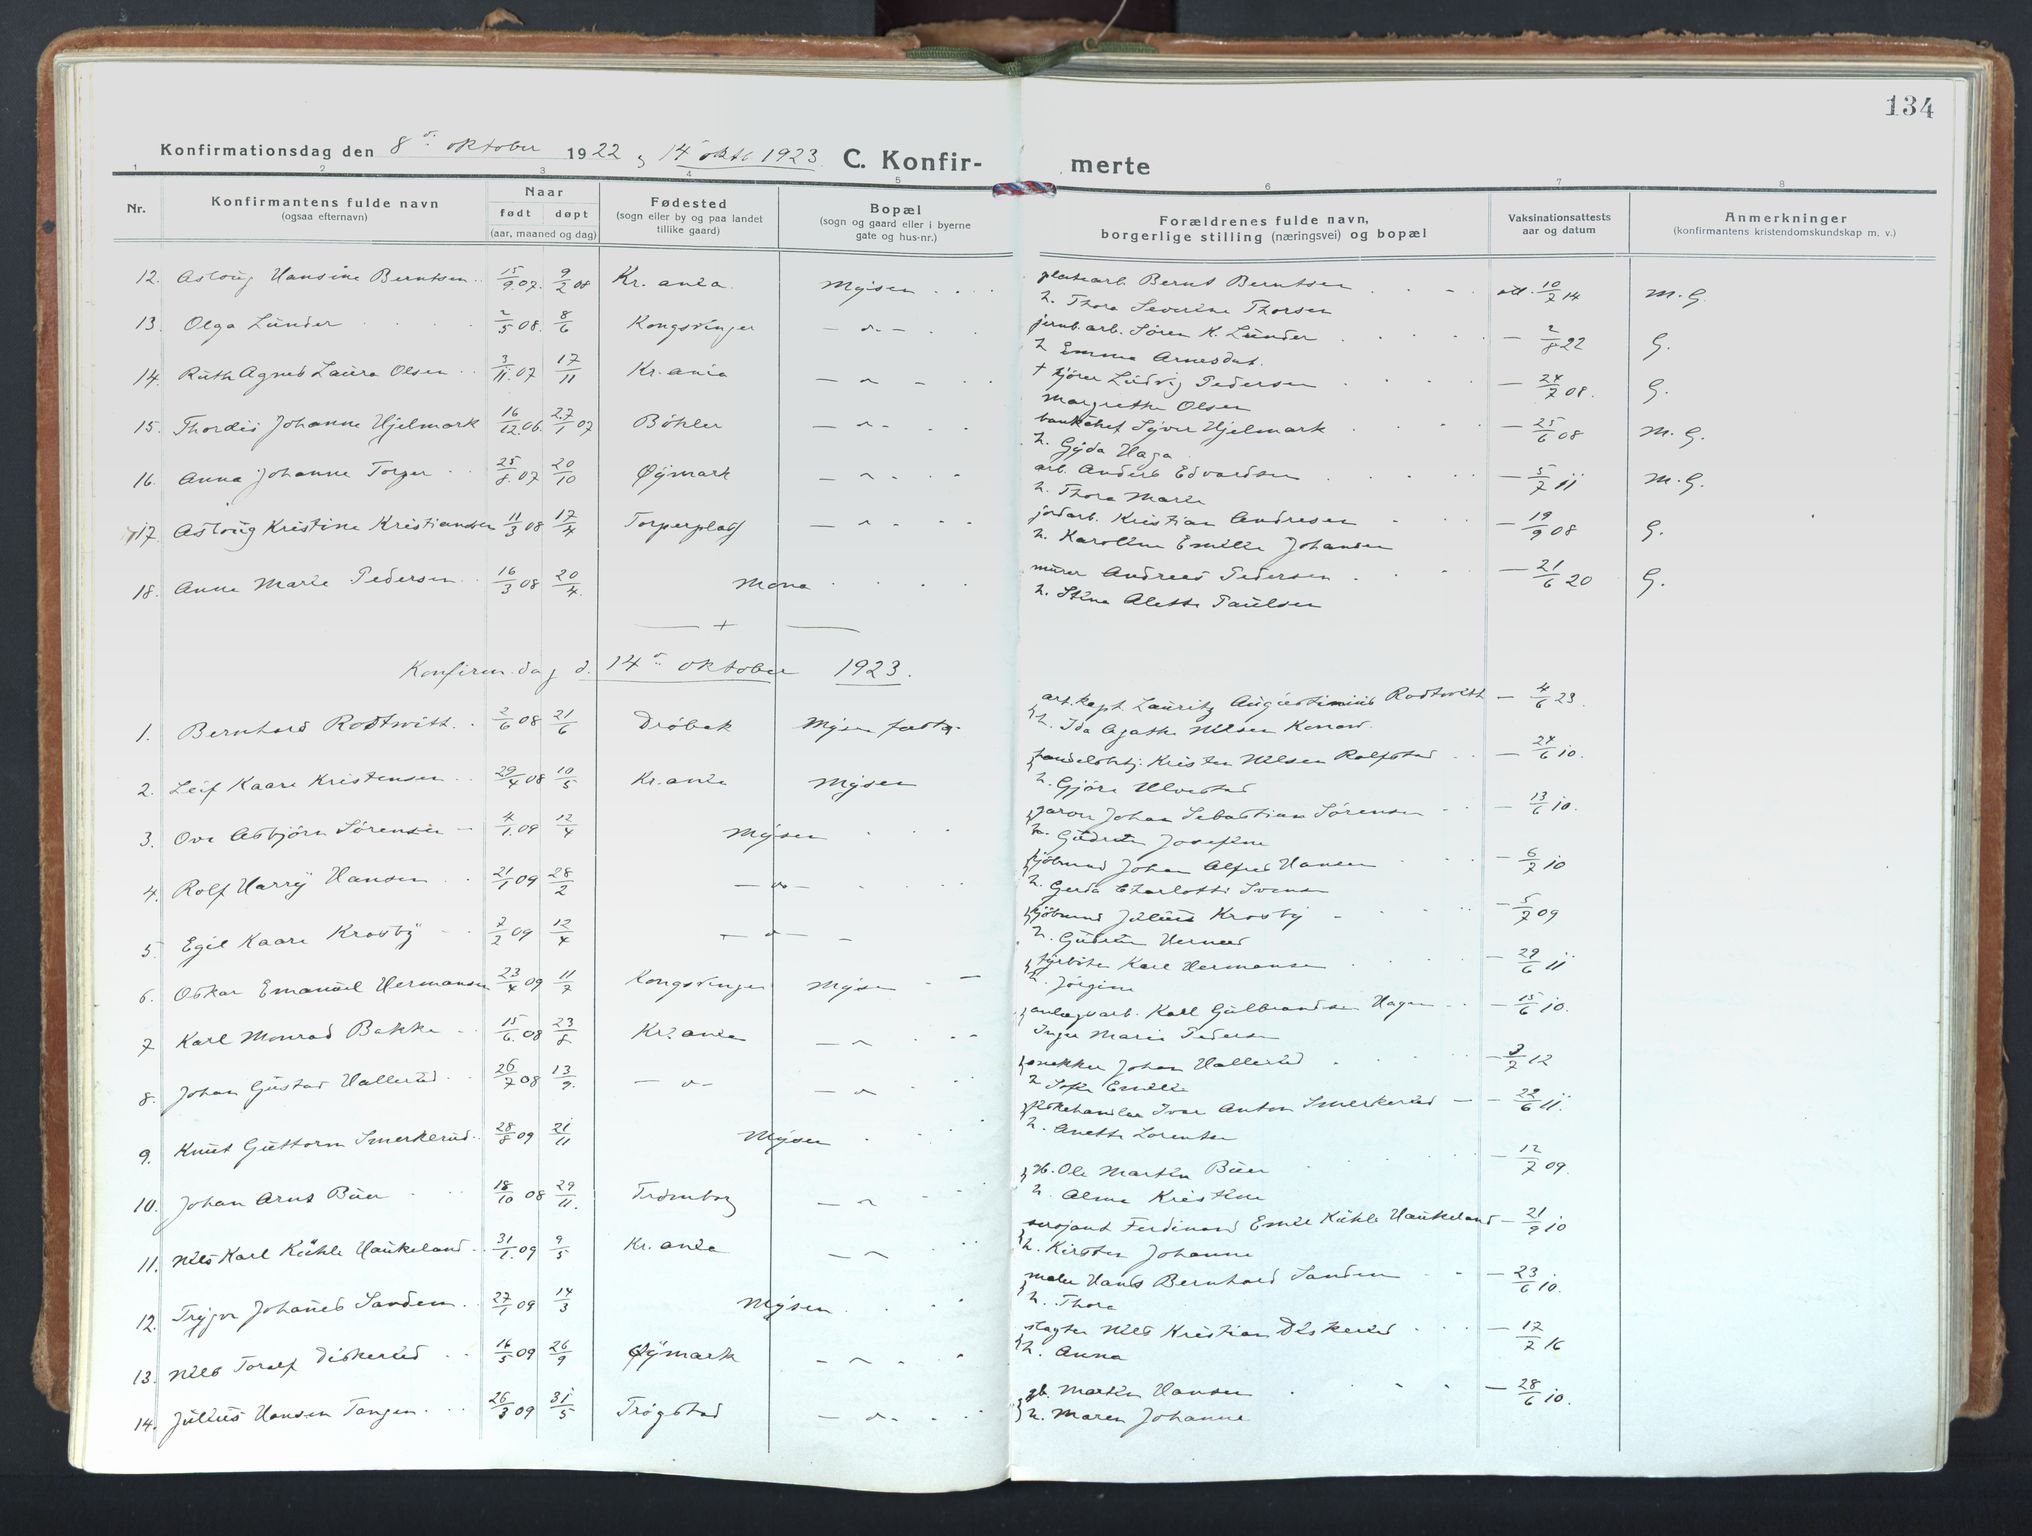 134
Konfirmationsdag den 8 oktober 1922 14 oktb 1923. C. Konfir- merte
1 2 3 4 5 6 7 8
Nr. Konfirmantens fulde navn (ogsaa efternavn) Naar født døpt (aar, maaned og dag) Fødested (sogn eller by og paa landet tillike gaard) Bopæl (sogn og gaard eller i byerne gate og hus-nr.) Forældrenes fulde navn, borgerlige stilling (næringsvei) og bopæl Vaksinationsattests aar og datum Anmerkninger (konfirmantens kristendomskundskap m. v.)
12. Aslaug Hansine Berntsen 15/9 07. 9/2 08 Kr.ania. Mysen Bernt Berntsen att. 10/7 14 M.G.
h. Thora Severine Thorsen
13. Olga Lunder 2/5 08. 8/6 Kongsvinger — do — jernb.arb. Søren K. Lunder — 2/8 22 G.
h Emma Arnesdat.
14. Ruth Agnes Laura Olsen 3/11 07 17/11 Kr.ania — " — † kjører Ludvig Pedersen — 24/7 08. G.
Margrethe Olsen
15. Thordis Johanne Hjelmark 16/12 06. 27/1 07 Bøhler — " — Syver Hjelmark — 25/6 08 M.G.
h. Gyda Haga
16. Anna Johanne Torper 25/8 07 20/10 Øymark — " — arb. Anders Edvardsen — 5/7 11 M.G.
h. Thora Marie
17. Aslaug Kristine Kristiansen 11/3 08 17/4 Torperplads — " — jordarb. Kristian Andresen — 19/9 08 G.
h. Karoline Emilie Johansen
18. Anne Marie Pedersen 16/3 08 20/4. Mona murer Andreas Pedersen — 21/6 20 G.
h. Stina Alette Paulsen
— + —
Konfirm.dag d. 14 oktober 1923.
1. Bernhard Rodtwitt 2/6 08 21/6 Drøbak Mysen art.kapt. Lauritz Augustinius Rodtwitt — 4/6 23.
h. Ida Agathe Nilsen Konow.
2. Leif Kaare Kristensen 29/4 08 10/5 Kr.ania Mysen Kristen Nilsen Rolfstad — 24/6 10.
h. Gjøra Ulvestad
3. Ove Asbjørn Sørensen — 4/1 09 12/4 Mysen Johan Sebastian Sørensen — 13/6 10.
h. Gudrun Josefine
4. Rolf Harry Hansen 21/1 09 28/2 — do — kjøbmand Johan Alfred Hansen — 6/7 10
h. Gerda Charlotte
5 Egil Kaare Krosby 7/2 09 12/4 — do — kjøbmand Julius Krosby — 5/7 09
h. Gudrun
6. Oskar Emanuel Hermansen 23/4 09 11/7 Kongsvinger Mysen Karl Hermansen — 29/6 11
h. Jørgine
7 Karl Monrad Bakke 15/6 08 23/8 Kr.ania — " — anlægsarb. Karl Gulbrandsen Hagen — 15/6 10.
Inga Marie Pedersen
8. Johan Gustav Hallerud 26/7 08 13/9. — do — — " snekker Johan Hallerud — 3/7 12
h Sofie Emilie
9. Knut Guttorm Smerkerud 28/8 09 21/11 Mysen fiskehandler Ivar Anton Smerkerud — 22/6 11.
h. Anette Lorentse
10. Johan Arnt Buer 18/10 08 29/11. Trømborg — " — Ole Martin Buer — 12/7 09.
h. Alma Kristine
11. Nils Karl Kühle Haukeland 31/1 09 9/5 Kr.ania — " sersjant Ferdinand Emil Kühle Haukeland — 21/9 10
h. Kirsten Johanne
12. Trygve Johannes Sandem 27/1 09 14/3 Mysen maler Hans Bernhard Sandem — 23/6 10.
h. Thora
13. Nils Toralf Diskerud 16/5 09 26/9 Øymark — " — slagter Nils Kristian Diskerud — 17/7 16
h. Anna
14. Julius Hansen Tangen 26/3 09 31/5 Trøgstad — do — gb. Martin Hansen — 28/6 10.
h. Maren Johanne